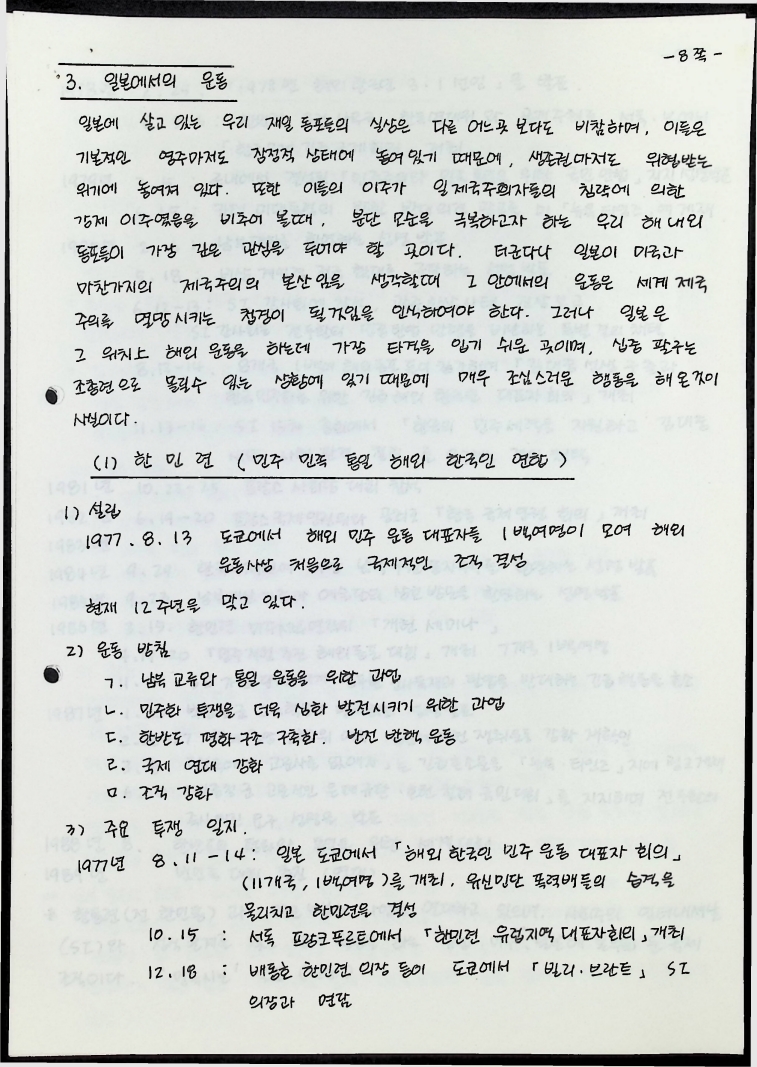 -8쪽-
3. 일본에서의 운동
일본에 살고 있는 우리 재일 동포들의 실상은 다른 어느곳 보다도 비참하며, 이들은
기본적인 영주마저도 잠정적 상태에 놓여 있기 때문에, 생존권마저도 위협받는
위기에 놓여져 있다. 또한 이들의 이주가 일제국주의자들의 침략에 의한
강제 이주였음을 비추어 볼때, 분단 모순을 극복하고자 하는 우리 해내외
동포들이 가장 깊은 관심을 두어야 할 곳이다. 더군다나 일본이 미국과
마찬가지의 제국주의의 본산임을 생각할때 그 안에서의 운동은 세계 제국
주의를 멸망시키는 첩경이 될거임을 인식하여야 한다. 그러나 일본은
그 위치상 해외 운동을 하는데 가장 타격을 입기 쉬운 곳이며, 십중 팔구는
조총련으로 몰릴수 있는 상황에 있기 때문에 매우 조심스러운 행동을 해온것이
사실이다.
(1) 한민련 (민주 민족 통일 해외 한국인 연합)
1) 설립
1977. 8. 13 도쿄에서 해외 민주 운동 대표자들 1백여명이 모여 해외
운동사상 처음으로 국제적인 조직 결성
현재 12주년을 맞고 있다.
2) 운동 방침
ㄱ. 남북 교류와 통일 운동을 위한 과업
ㄴ. 민주화 투쟁을 더욱 심화 발전시키기 위한 과업
ㄷ. 한반도 평화구조 구축화. 반전 반핵 운동
ㄹ. 국제 연대 강화
ㅁ. 조직 강화
3) 주요 투쟁 일지.
1977년 8. 11-14: 일본 도쿄에서 「해외 한국인 민주 운동 대표자 회의」
(11개국, 1백여명)를 개최. 유신민단 폭력배들의 습격을
물리치고 한민련을 결성
10. 15 : 서독 프랑크푸르트에서 「한민련 유럽지역 대표자회의」개최
12. 18 : 배동호 한민련 의장 등이 도쿄에서 「빌리·브란트」 SI
의장과 면담